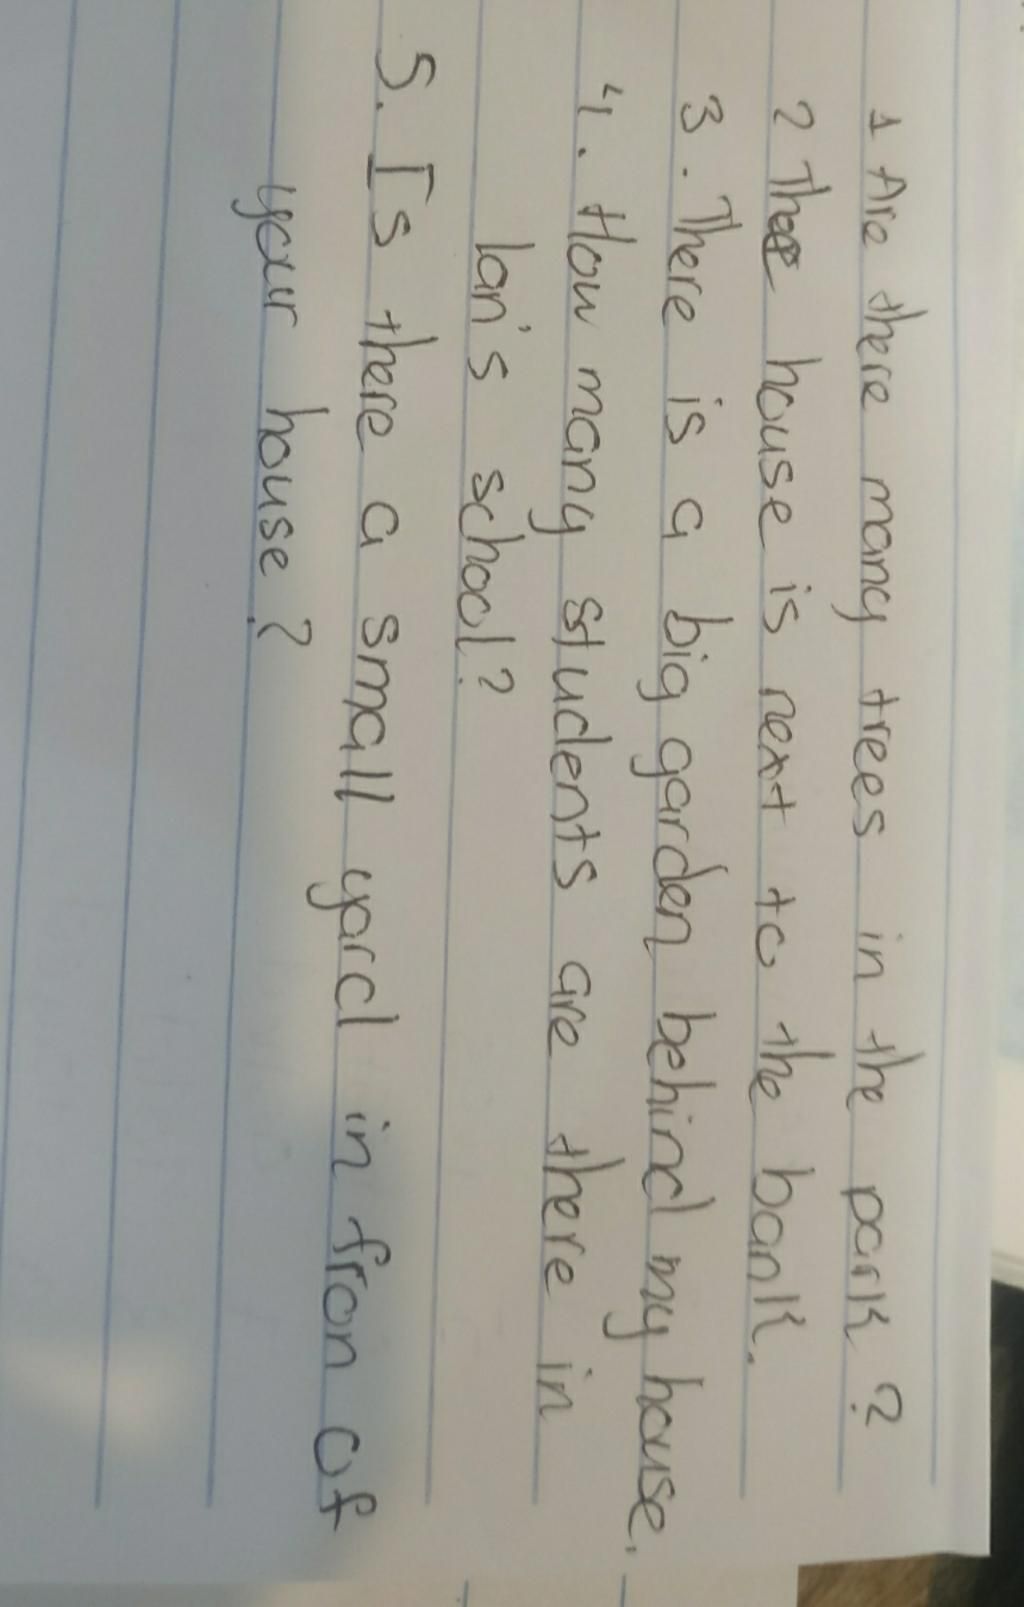 1 Are there many trees in the park?
2 The house is next to the bank.
3. There is a big garden behind my house.
4. How many students are there in
lan's school?
5. Is there a small yard in fron of
your house?